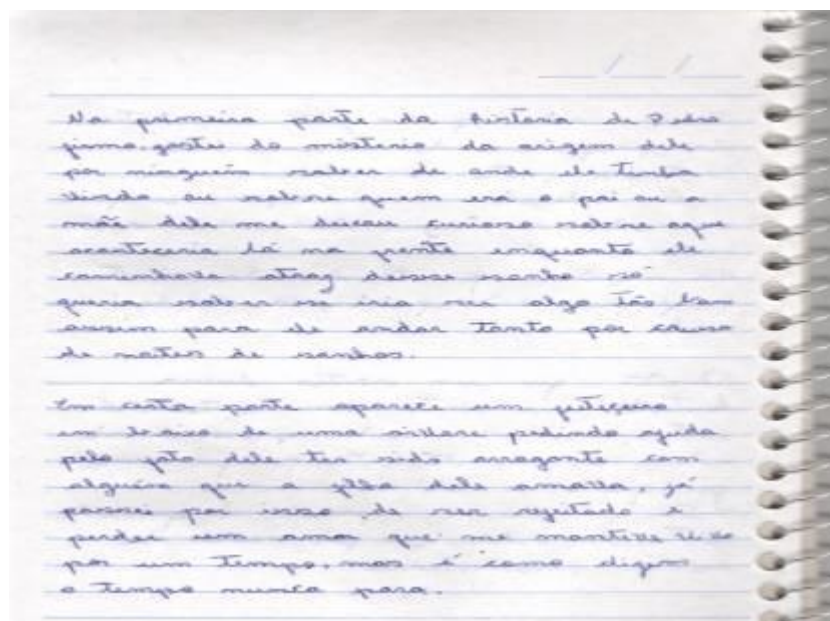 Na primeira parte da história de Pedro
gostei do mistério da origem dele
por ninguém saber de onde ele tinha
vindo ou sobre quem era o pai ou a
mãe dele me deixou curioso sobre oque
aconteceria lá na frente enquanto ele
caminhava atraz desse sonho só
queria saber se iria ser algo tão bom
assim para ele andar tanto por causa
de noites de sonhos.
Em certa parte aparece um feiticeiro
em baixo de uma árvore pedindo ajuda
pelo fato dele ter sido arrogante com
alguém que a filha dele amava, já
passei por isso, de ser rejeitado e
perder um amor que me manteve vivo
por um tempo, mas é como dizem
o tempo nunca para.